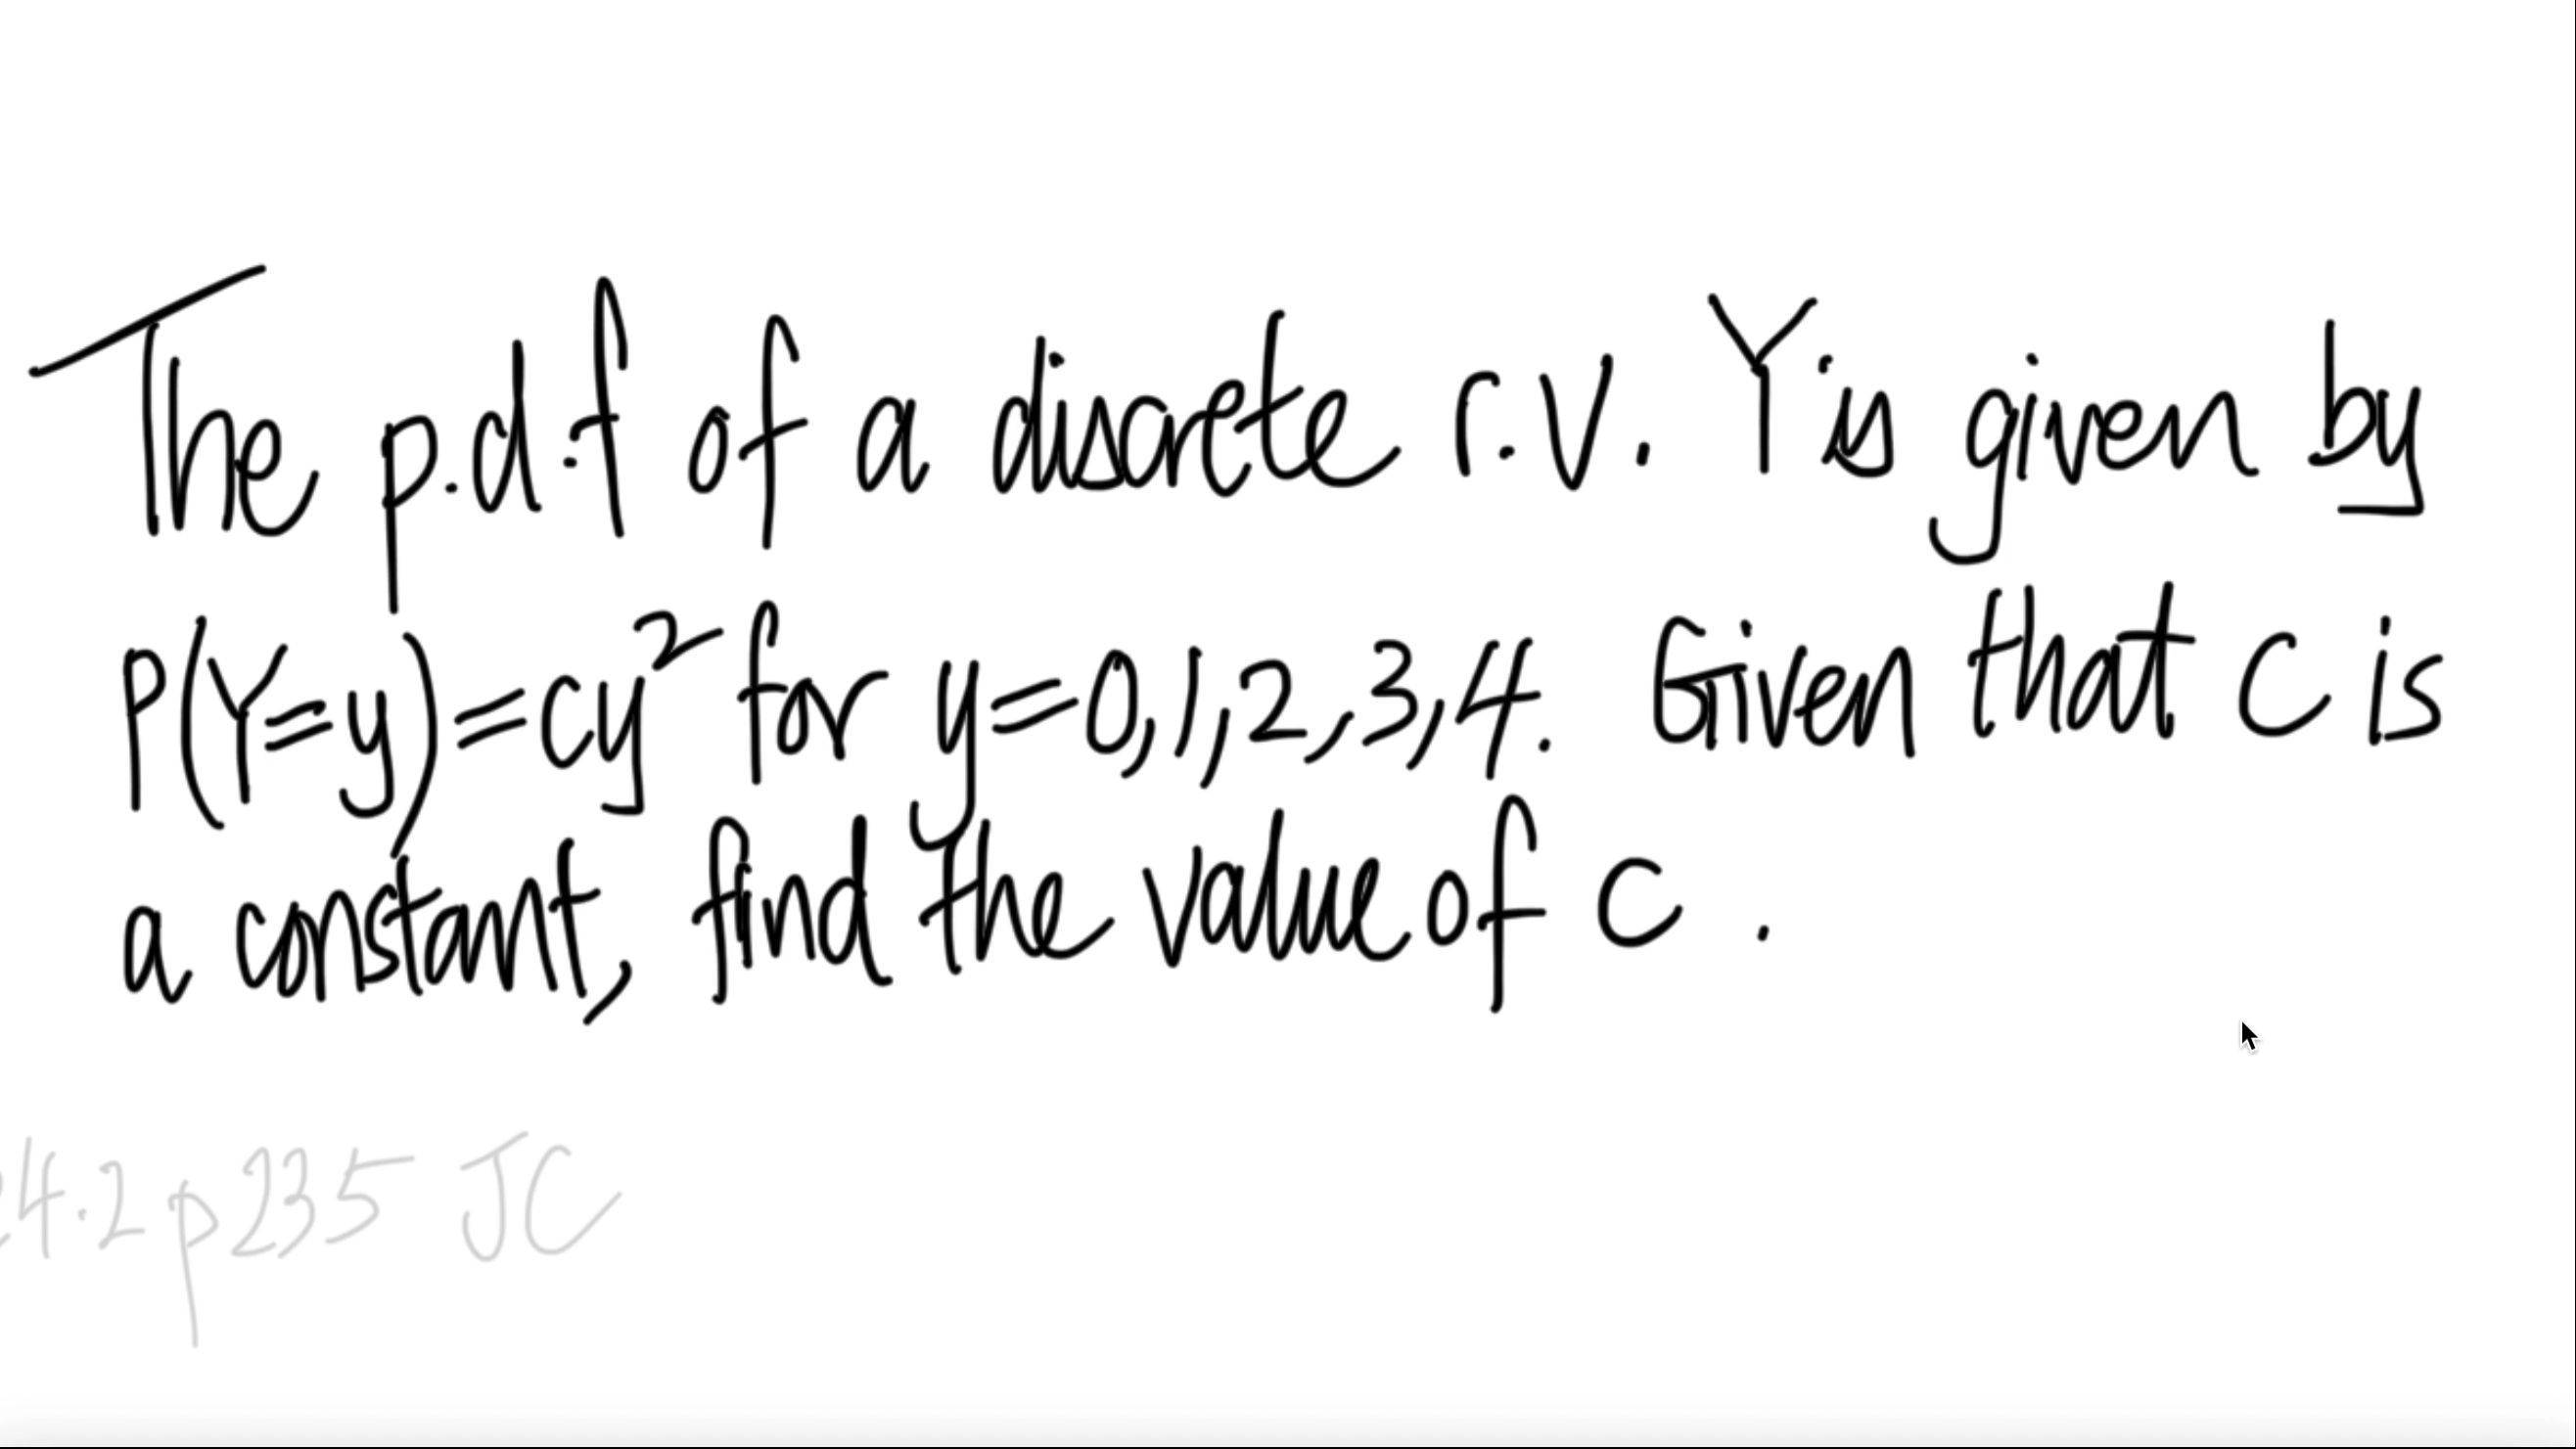 The p.d.f of a discrete r.v. Y is given by
P(Y=y)=cy² for y=0,1,2,3,4. Given that c is
a constant, find the value of c .
24.2 p235 JC